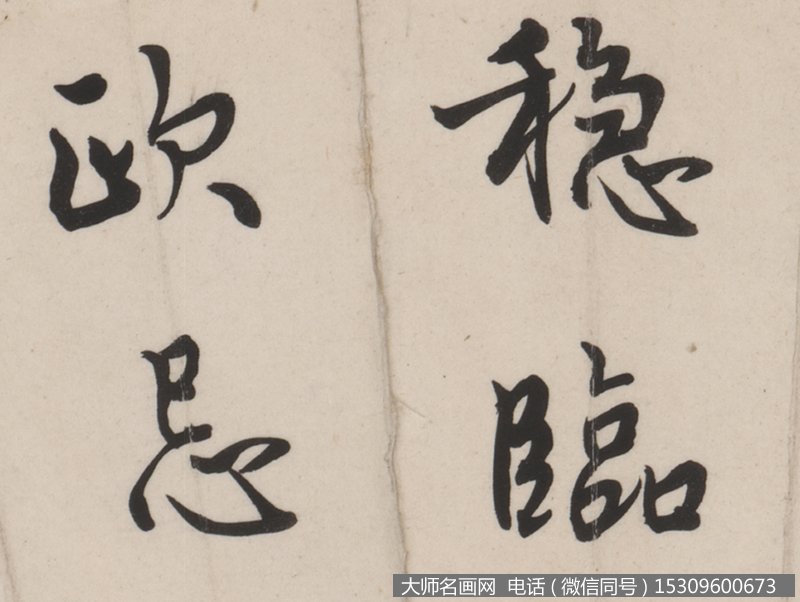 稳臨
欧忌
大师名画网 电话（微信同号）15309600673